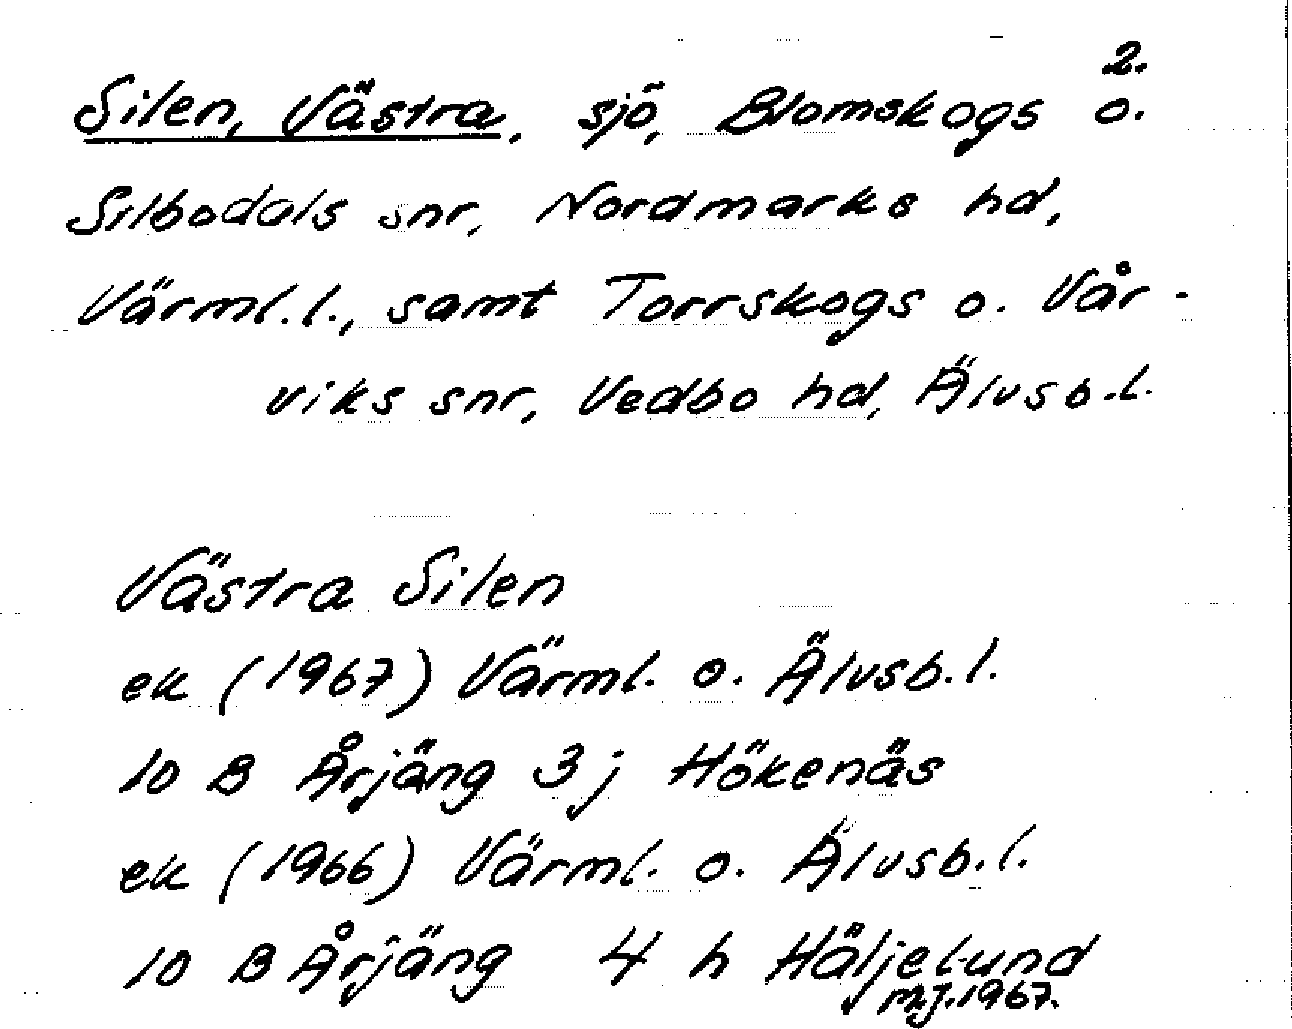 2.
Silen, Västra, sjö, Blomskogs o.
Silbodals snr, Nordmarks hd,
Värml.l., samt Torrskogs o. Vår-
viks snr, Vedbo hd, Älvsb.l.
Västra Silen
ek (1967) Värml. o. Älvsb.l.
10 B Årjäng 3 j Hökenäs
ek (1966) Värml. o. Älvsb.l.
10 B Årjäng 4 h Häljelund
M.J. 1967.